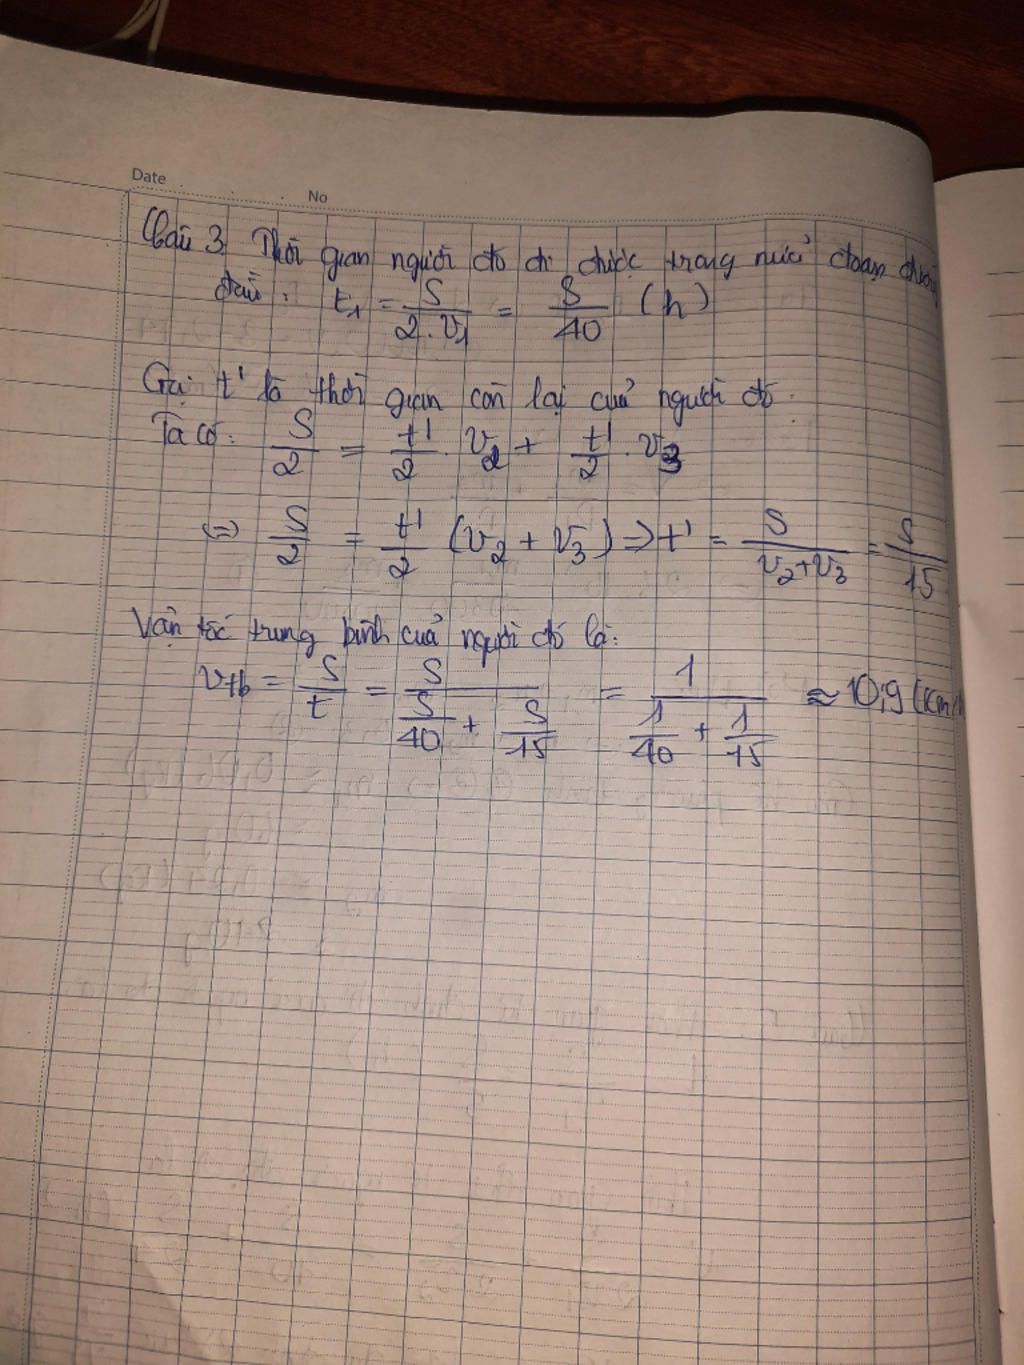 Date No
Câu 3. Thời gian người đó đi được trong nửa đoạn đường
đầu: t₁ = S/(2.v₁) = S/40 (h)
Gọi t' là thời gian còn lại của người đó.
Ta có: S/2 = t'/2 . v₂ + t'/2 . v₃
⇔ S/2 = t'/2 (v₂ + v₃) ⇒ t' = S/(v₂+v₃) = S/15
Vận tốc trung bình của người đó là:
vtb = S/t = S/(S/40 + S/15) = 1/(1/40 + 1/15) ≈ 10,9 (km/